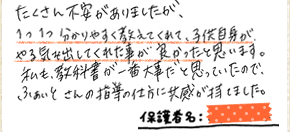 たくさん不安がありましたが、
1つ1つ分かりやすく教えてくれて、子供自身が
やる気を出してくれた事が良かったと思います。
私も、教科書が一番大事だと思っていたので、
ふぁいと さんの指導の仕方に共感が持てました。
保護者名：